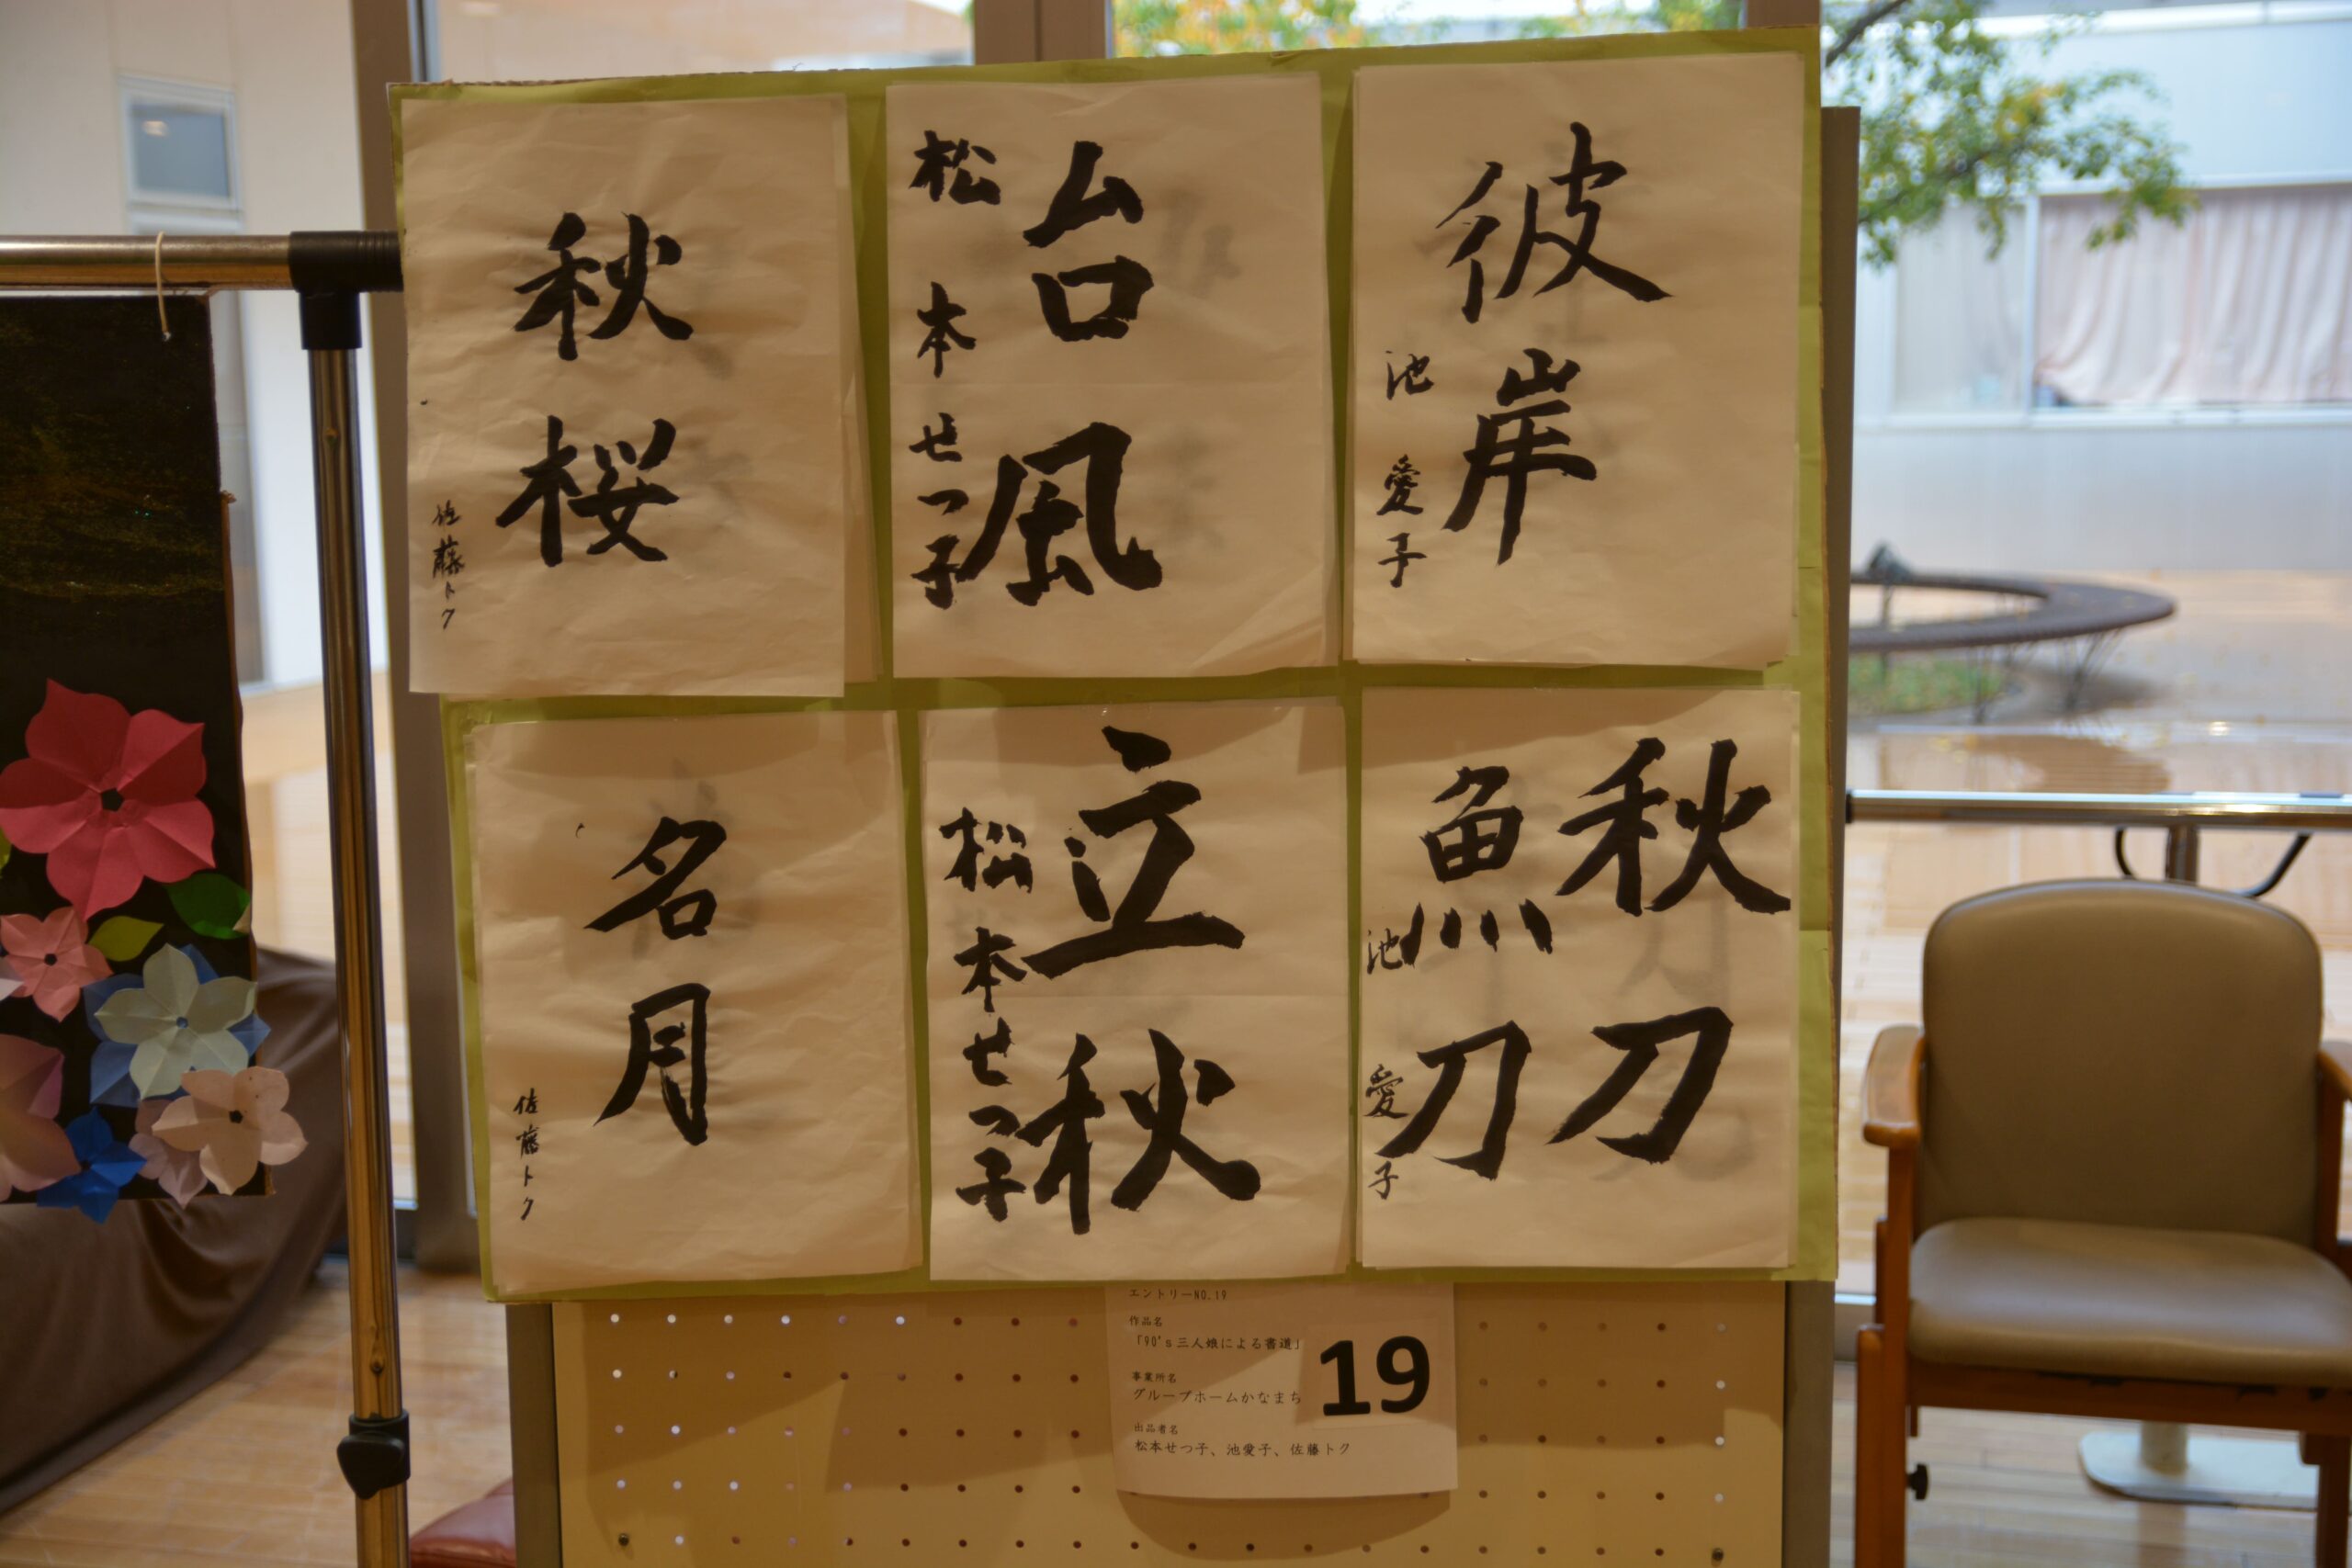 彼岸
池愛子
台風
松本せつ子
秋桜
佐藤トク
秋刀
魚刀
池愛子
立秋
松本せつ子
名月
佐藤トク
エントリーNO.19
作品名
「90's三人娘による書道」
事業所名
グループホームかなまち
出品者名
松本せつ子、池愛子、佐藤トク
19